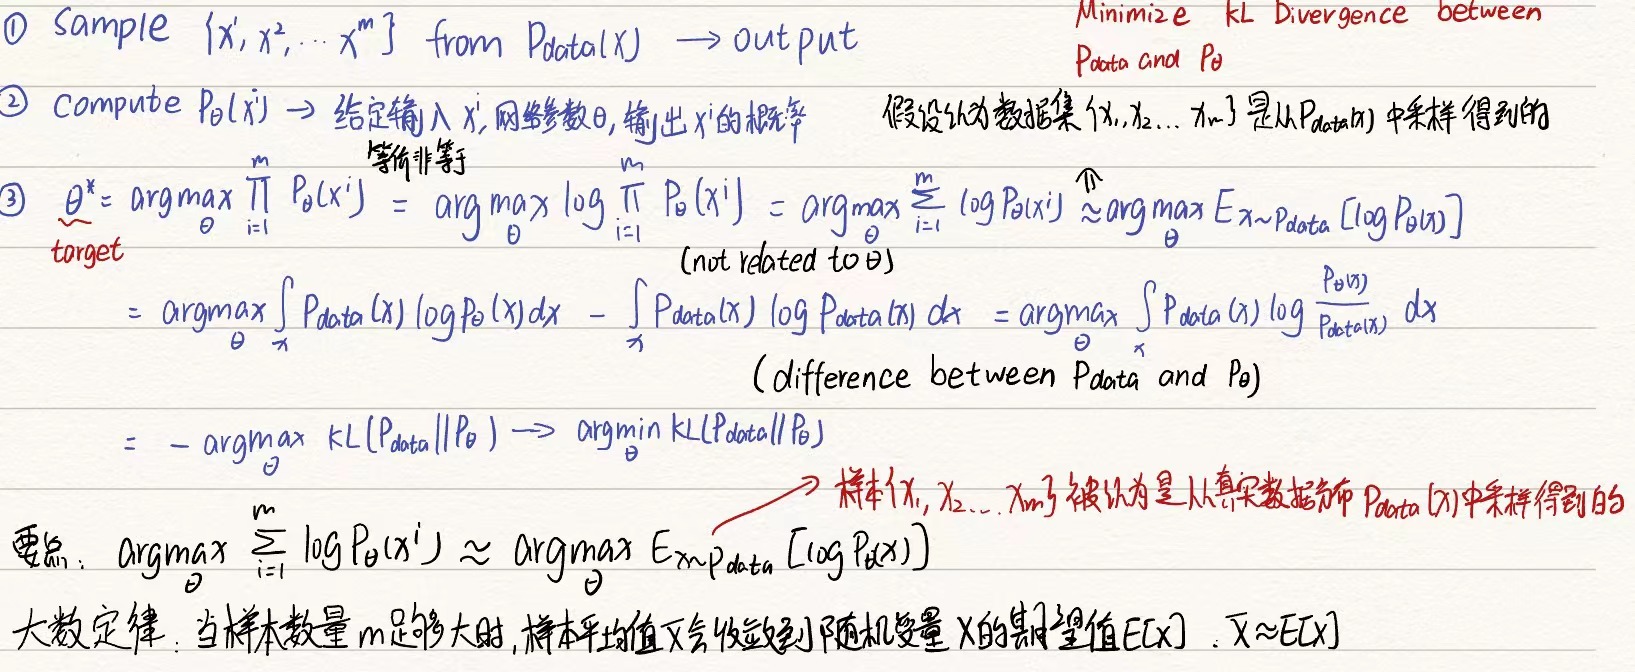 Minimize KL Divergence between
Pdata and Pθ
① Sample {x¹, x², ... x^m} from Pdata(x) → output
② compute Pθ(xⁱ) → 给定输入 xⁱ, 网络参数θ, 输出 xⁱ的概率
假设认为数据集{x₁, x₂... x_m}是从Pdata(x)中采样得到的
等价非等于
③ θ* = argmax_θ ∏_{i=1}^m Pθ(xⁱ) = argmax_θ log ∏_{i=1}^m Pθ(xⁱ) = argmax_θ ∑_{i=1}^m log Pθ(xⁱ) ≈ argmax_θ E_{x~Pdata} [log Pθ(x)]
⇑
target
(not related to θ)
= argmax_θ ∫_x Pdata(x) log Pθ(x) dx − ∫_x Pdata(x) log Pdata(x) dx = argmax_θ ∫_x Pdata(x) log Pθ(x)/Pdata(x) dx
(difference between Pdata and Pθ)
= − argmax_θ KL(Pdata||Pθ) → argmin_θ KL(Pdata||Pθ)
→ 样本{x₁, x₂... x_m}被认为是从真实数据分布 Pdata(x)中采样得到的
要点: argmax_θ ∑_{i=1}^m log Pθ(xⁱ) ≈ argmax_θ E_{x~Pdata} [log Pθ(x)]
大数定律: 当样本数量m足够大时, 样本平均值 X̄会收敛到随机变量 X的期望值E[X]. X̄≈E[X]